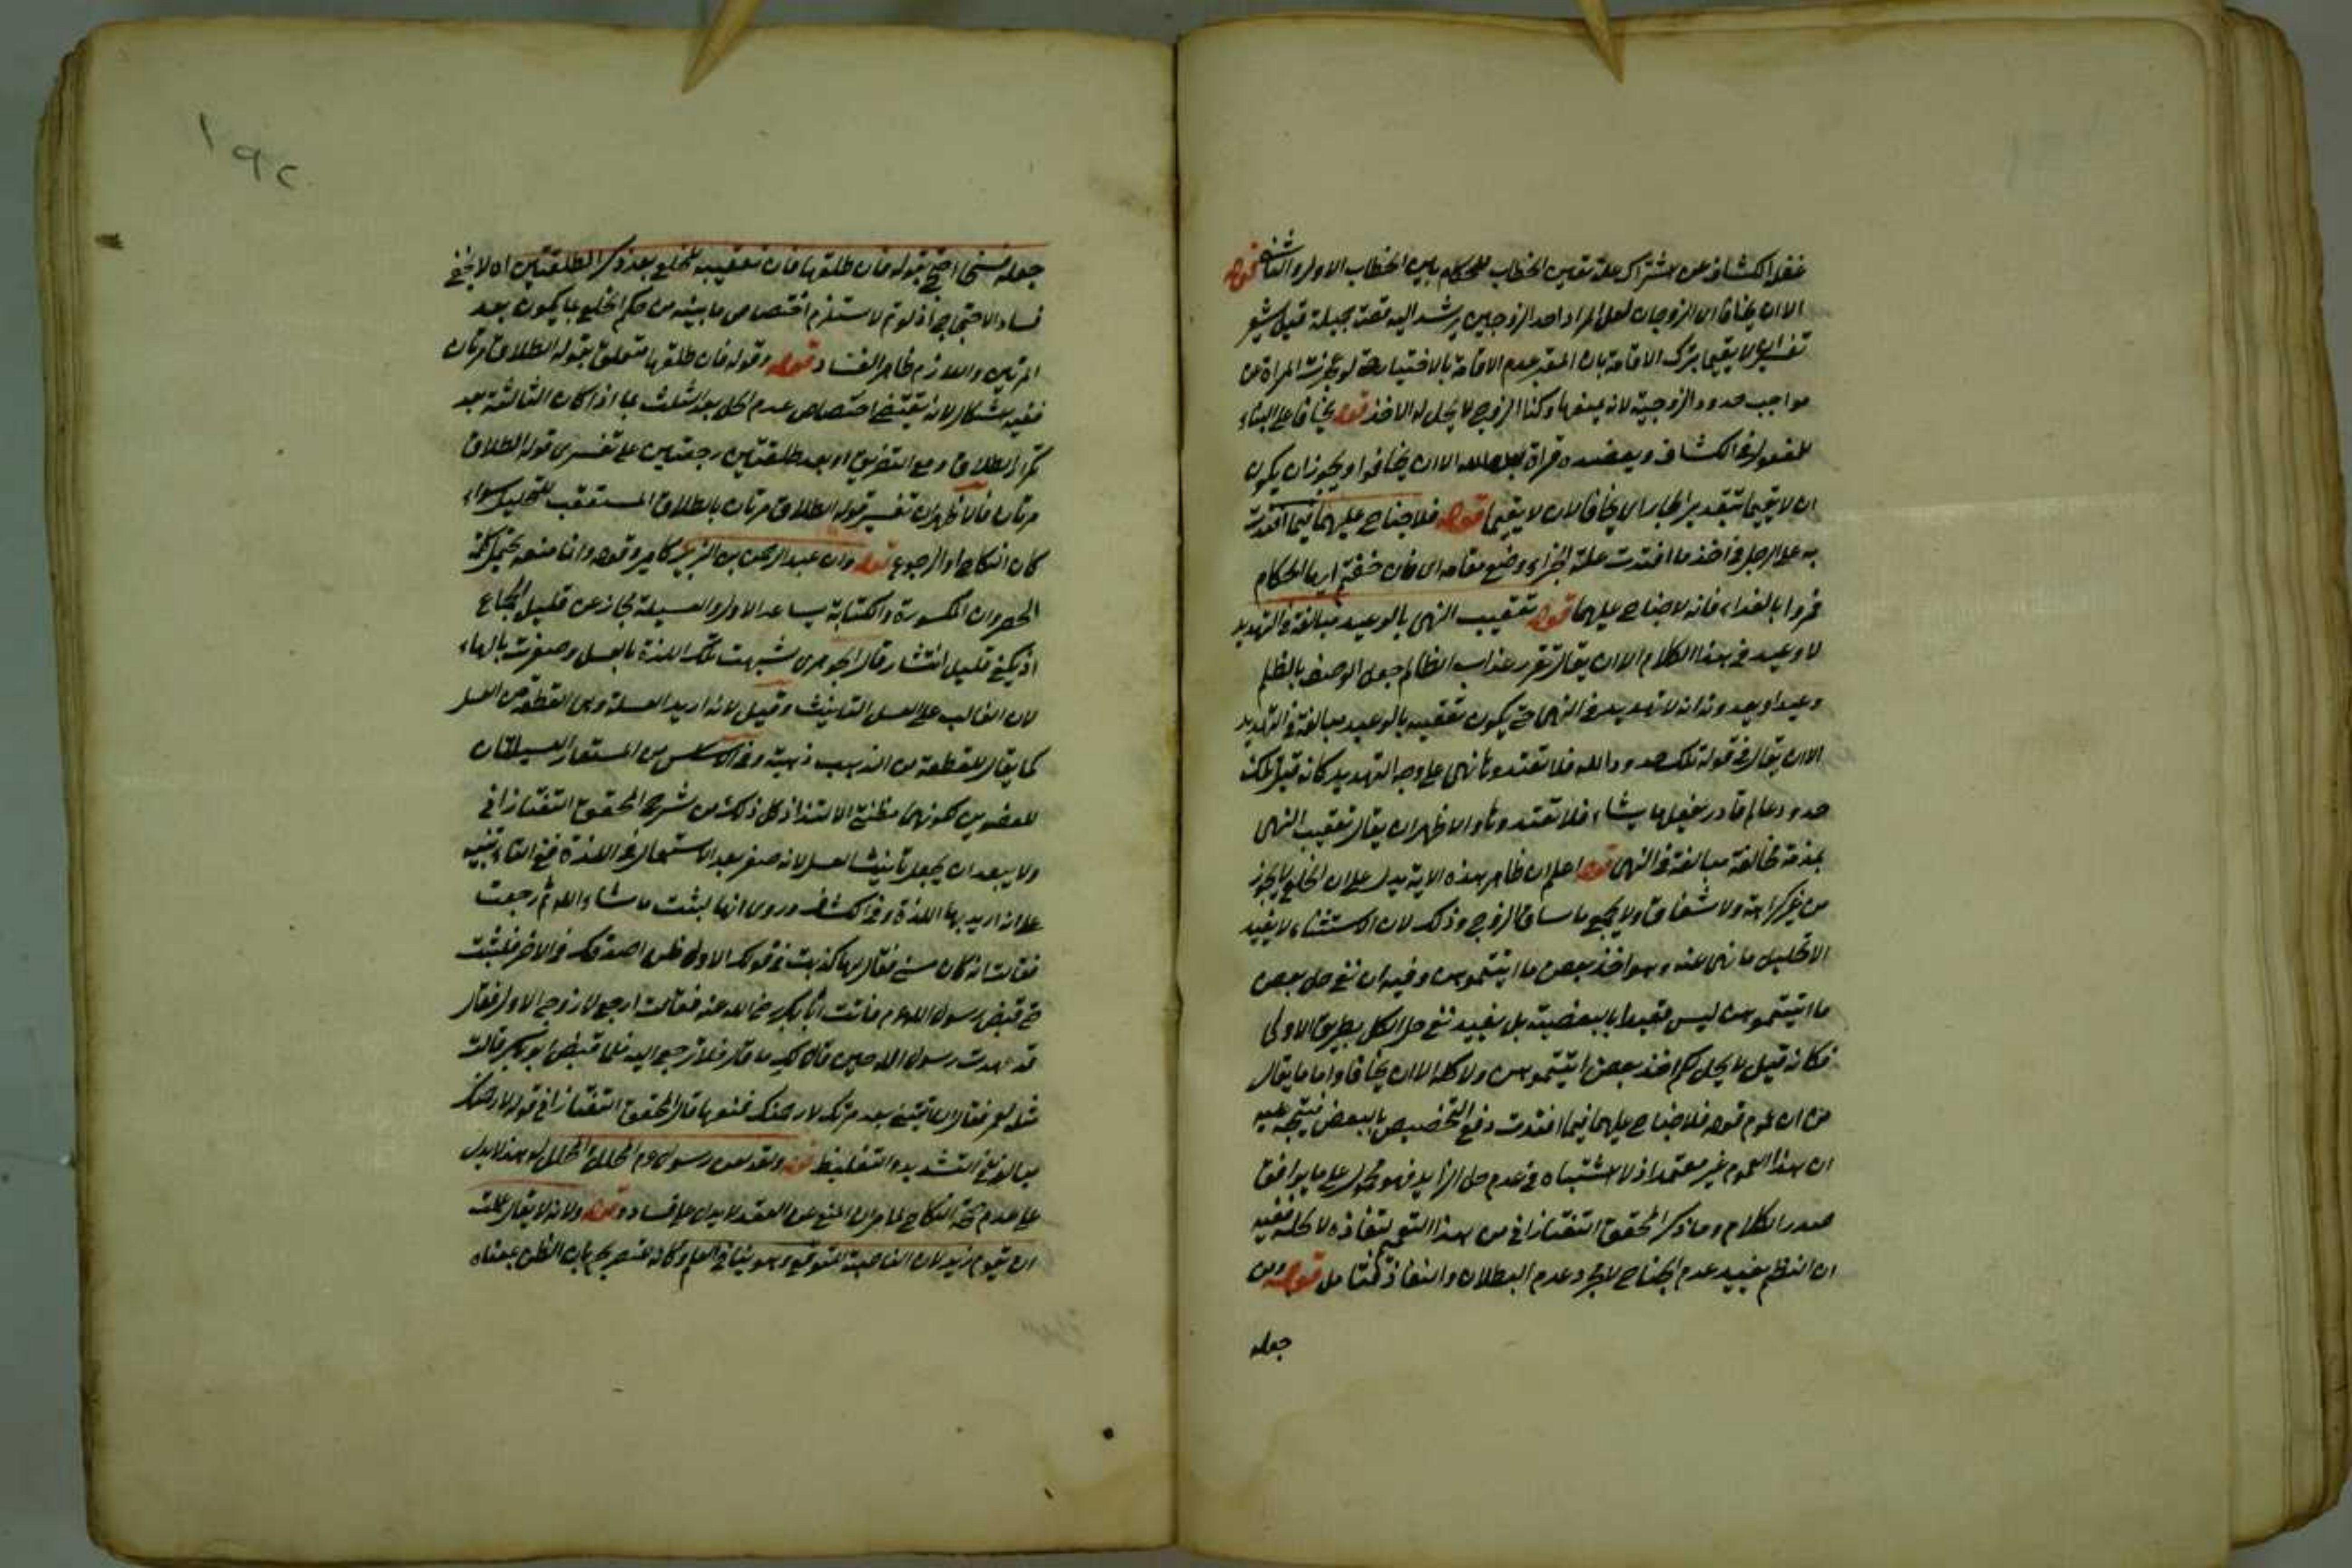 غفل الكشاف عن اشتراك علة تعين الخطاب للحكام بين الخطاب الاول والثانى قوله
الا ان يخافا اى الزوجان لعل المراد احد الزوجين يرشد اليه قصة جميلة قيل يشعر
تفسير ان لا يقيما بترك الاقامة بان المعتبر عدم الاقامة بالاختيار حتى لو عجزت المراة عن
مواجب حدود الزوجية لانه يمنعها وكذا الزوج لا يحل له الاخذ قوله يخافا على البناء
للمفعول فى الكشاف ويعضده قراة عبد الله الا ان يخافوا ويجوز ان يكون
ان لا يقيما بتقدير الجار اى يخافا لان لا يقيما قوله فلا جناح عليهما فيما افتدت
به على الرجل فى اخذ ما افتدت علة الجزاء وضع مقامه اى فان خفتم ايها الحكام
فمروا بالفداء فانه لا جناح عليهما قوله تعقيب النهى بالوعيد مبالغة فى التهديد
لا وعيد فى هذا الكلام الا ان يقال تقرر عذاب الظالم جعل الوصف بالظلم
وعيدا وبعد فيه انه لا تهديد فى النهى حتى يكون تعقيبه بالوعيد مبالغة فى التهديد
الا ان يقال فى قوله تلك حدود الله فلا تعتدوها نهى على وجه التهديد كانه قيل تلك
حدود عالم قادر يفعل ما يشاء فلا تعتدوها والاظهر ان يقال تعقيب النهى
بمذمة مخالفة مبالغة فى النهى قوله اعلم ان ظاهر هذه الاية يدل على ان الخلع لا يجوز
من غير كراهة ولا شقاق ولا بجميع ما ساق الزوج وذلك لان الاستثناء لا يفيد
الا تحليل ما نهى عنه وهو اخذ بعض ما اتيتموهن وفيه ان نفى حل بعض
ما اتيتموهن ليس مقيدا بالبعضية بل يفيد نفى حل الكل بطريق الاولى
فكانه قيل لا يحل لكم اخذ بعض ما اتيتموهن ولا كله الا ان يخافا واما ما يقال
من ان عموم قوله فلا جناح عليهما فيما افتدت دفع التخصيص بالبعض فيتجه عليه
ان هذا العموم غير معتمد اذ لا اشتباه فى عدم حل الزايد فهو محمول على ما يوافق
صدر الكلام وما ذكر المحقق التفتازانى من هذا التعميم لنفاذه لا لحله ففيه
ان النظم يفيد عدم الجناح لا مجرد عدم البطلان والنفاذ فتامل قوله ومن
جعله
١٩٢
جعله فسخا احتج بقوله فان طلقها فان تعقيبه للخلع بعد ذكر الطلقتين اه لا يخفى
فساد الاحتجاج اذ لو تم لاستلزم اختصاص ما بينه من حكم الخلع بما يكون بعد
المرتين واللازم ظاهر الفساد قوله وقوله فان طلقها متعلق بقوله الطلاق مرتان
ففيه اشكال لانه يقتضى اختصاص عدم الحل بعد الثلث بما اذا كان الثالثة بعد
تكرار الطلاق مع التفريق او بعد طلقتين رجعتين على تفسيرى قوله الطلاق
مرتان فالاظهر ان تفسير قوله الطلاق مرتان بالطلاق المستعقب للتحليل سواء
كان النكاح او الرجوع قوله وان عبد الرحمن بن الزبير كامير وقوله وانما معه يحتمل كلمة
الحصر وان المكسورة والكتابة يساعد الاول والعسيلة مجاز عن قليل الجماع
اذ يكفى قليل انتشار قال الجوهرى شبهت تلك اللذة بالعسل وصغرت بالهاء
لان الغالب على العسل التانيث وقيل لانه اريد العسلة وهى القطعة من العسل
كما يقال للقطعة من الذهب ذهبة وفى الاساس من المستعار العسيلتان
للعضوين لكونهما مظنتى الالتذاذ كل ذلك من شرح المحقق التفتازانى
ولا يبعد ان يجعل تانيث العسل لانه صغر بعد الاستعمال فى اللذة ففى التاء تنبيه
على انه اريد بها اللذة وفى الكشاف وروى انها لبثت ما شاء الله ثم رجعت
فقالت انه كان مسنى فقال لها كذبت فى قولك الاول فلن اصدقك فى الاخر فلبثت
حتى قبض رسول الله عم فاتت ابا بكر رضى الله عنه فقالت ارجع لا زوجى الاول فقال
قد عهدت رسول الله حين قال لك ما قال فلا ترجعى اليه فلما قبض ابو بكر قالت
مثله لعمر فقال ان اتيتنى بعد مرتك لارجمنك فمنعها قال المحقق التفتازانى قوله لارجمنك
مبالغة فى التشديد والتغليظ قوله ولقد لعن رسول الله عم المحلل والمحلل له هذا لا يدل
على عدم صحة النكاح لما مر ان المنع عن العقد لا يدل على فساده قوله ولانه لا يقال علمت
ان يقوم زيد لان الناصبة للتوقع وهو ينافى العلم وكانه لم يصرح بان الظن بمعناه